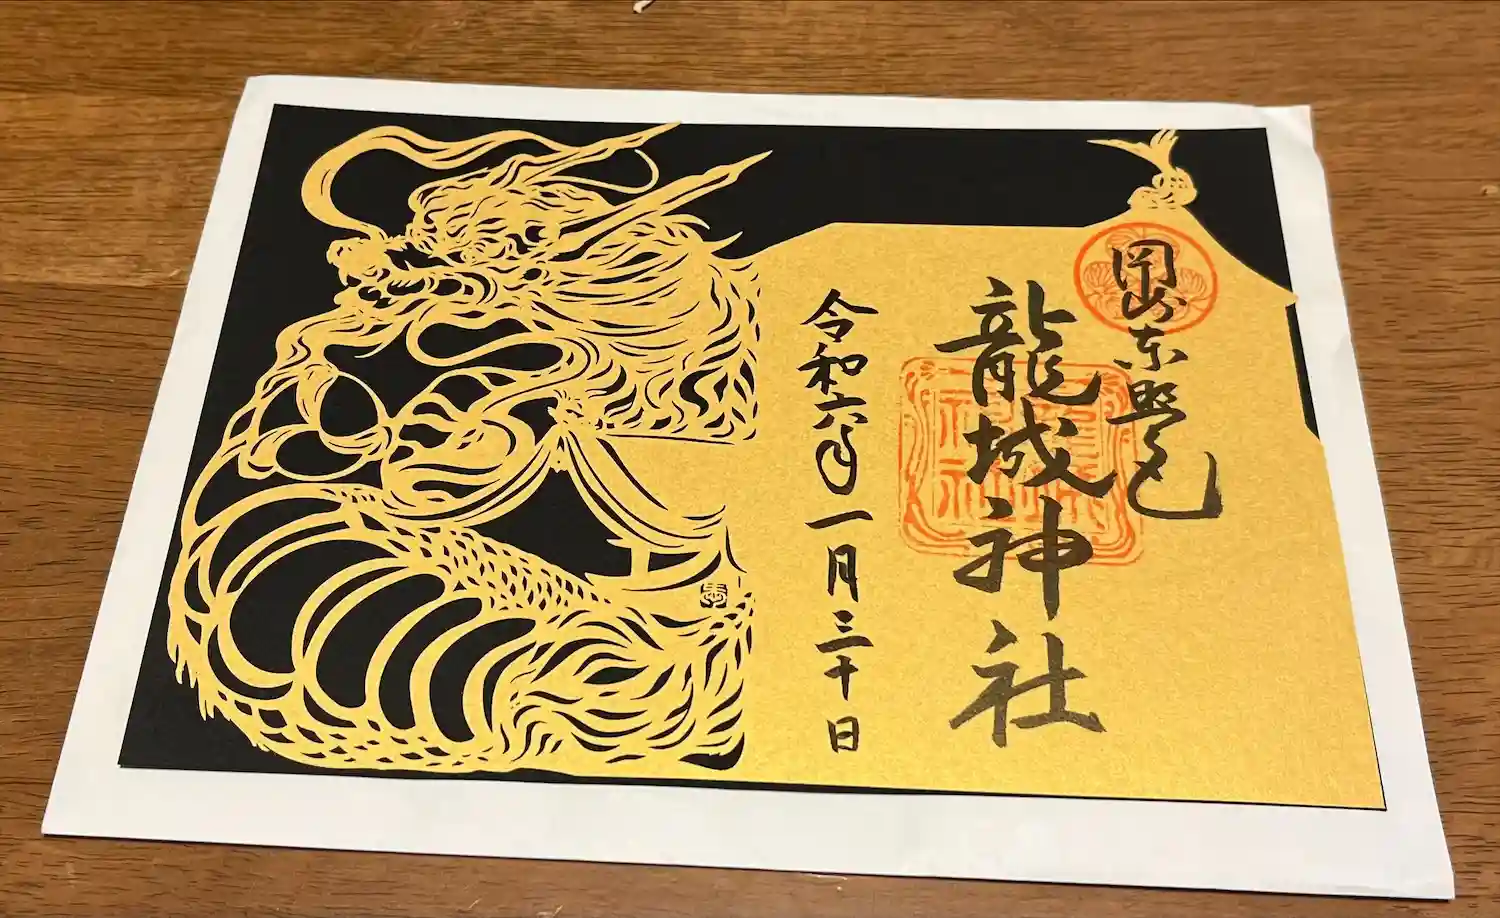 岡崎東照宮
龍城神社
令和六年一月三十日